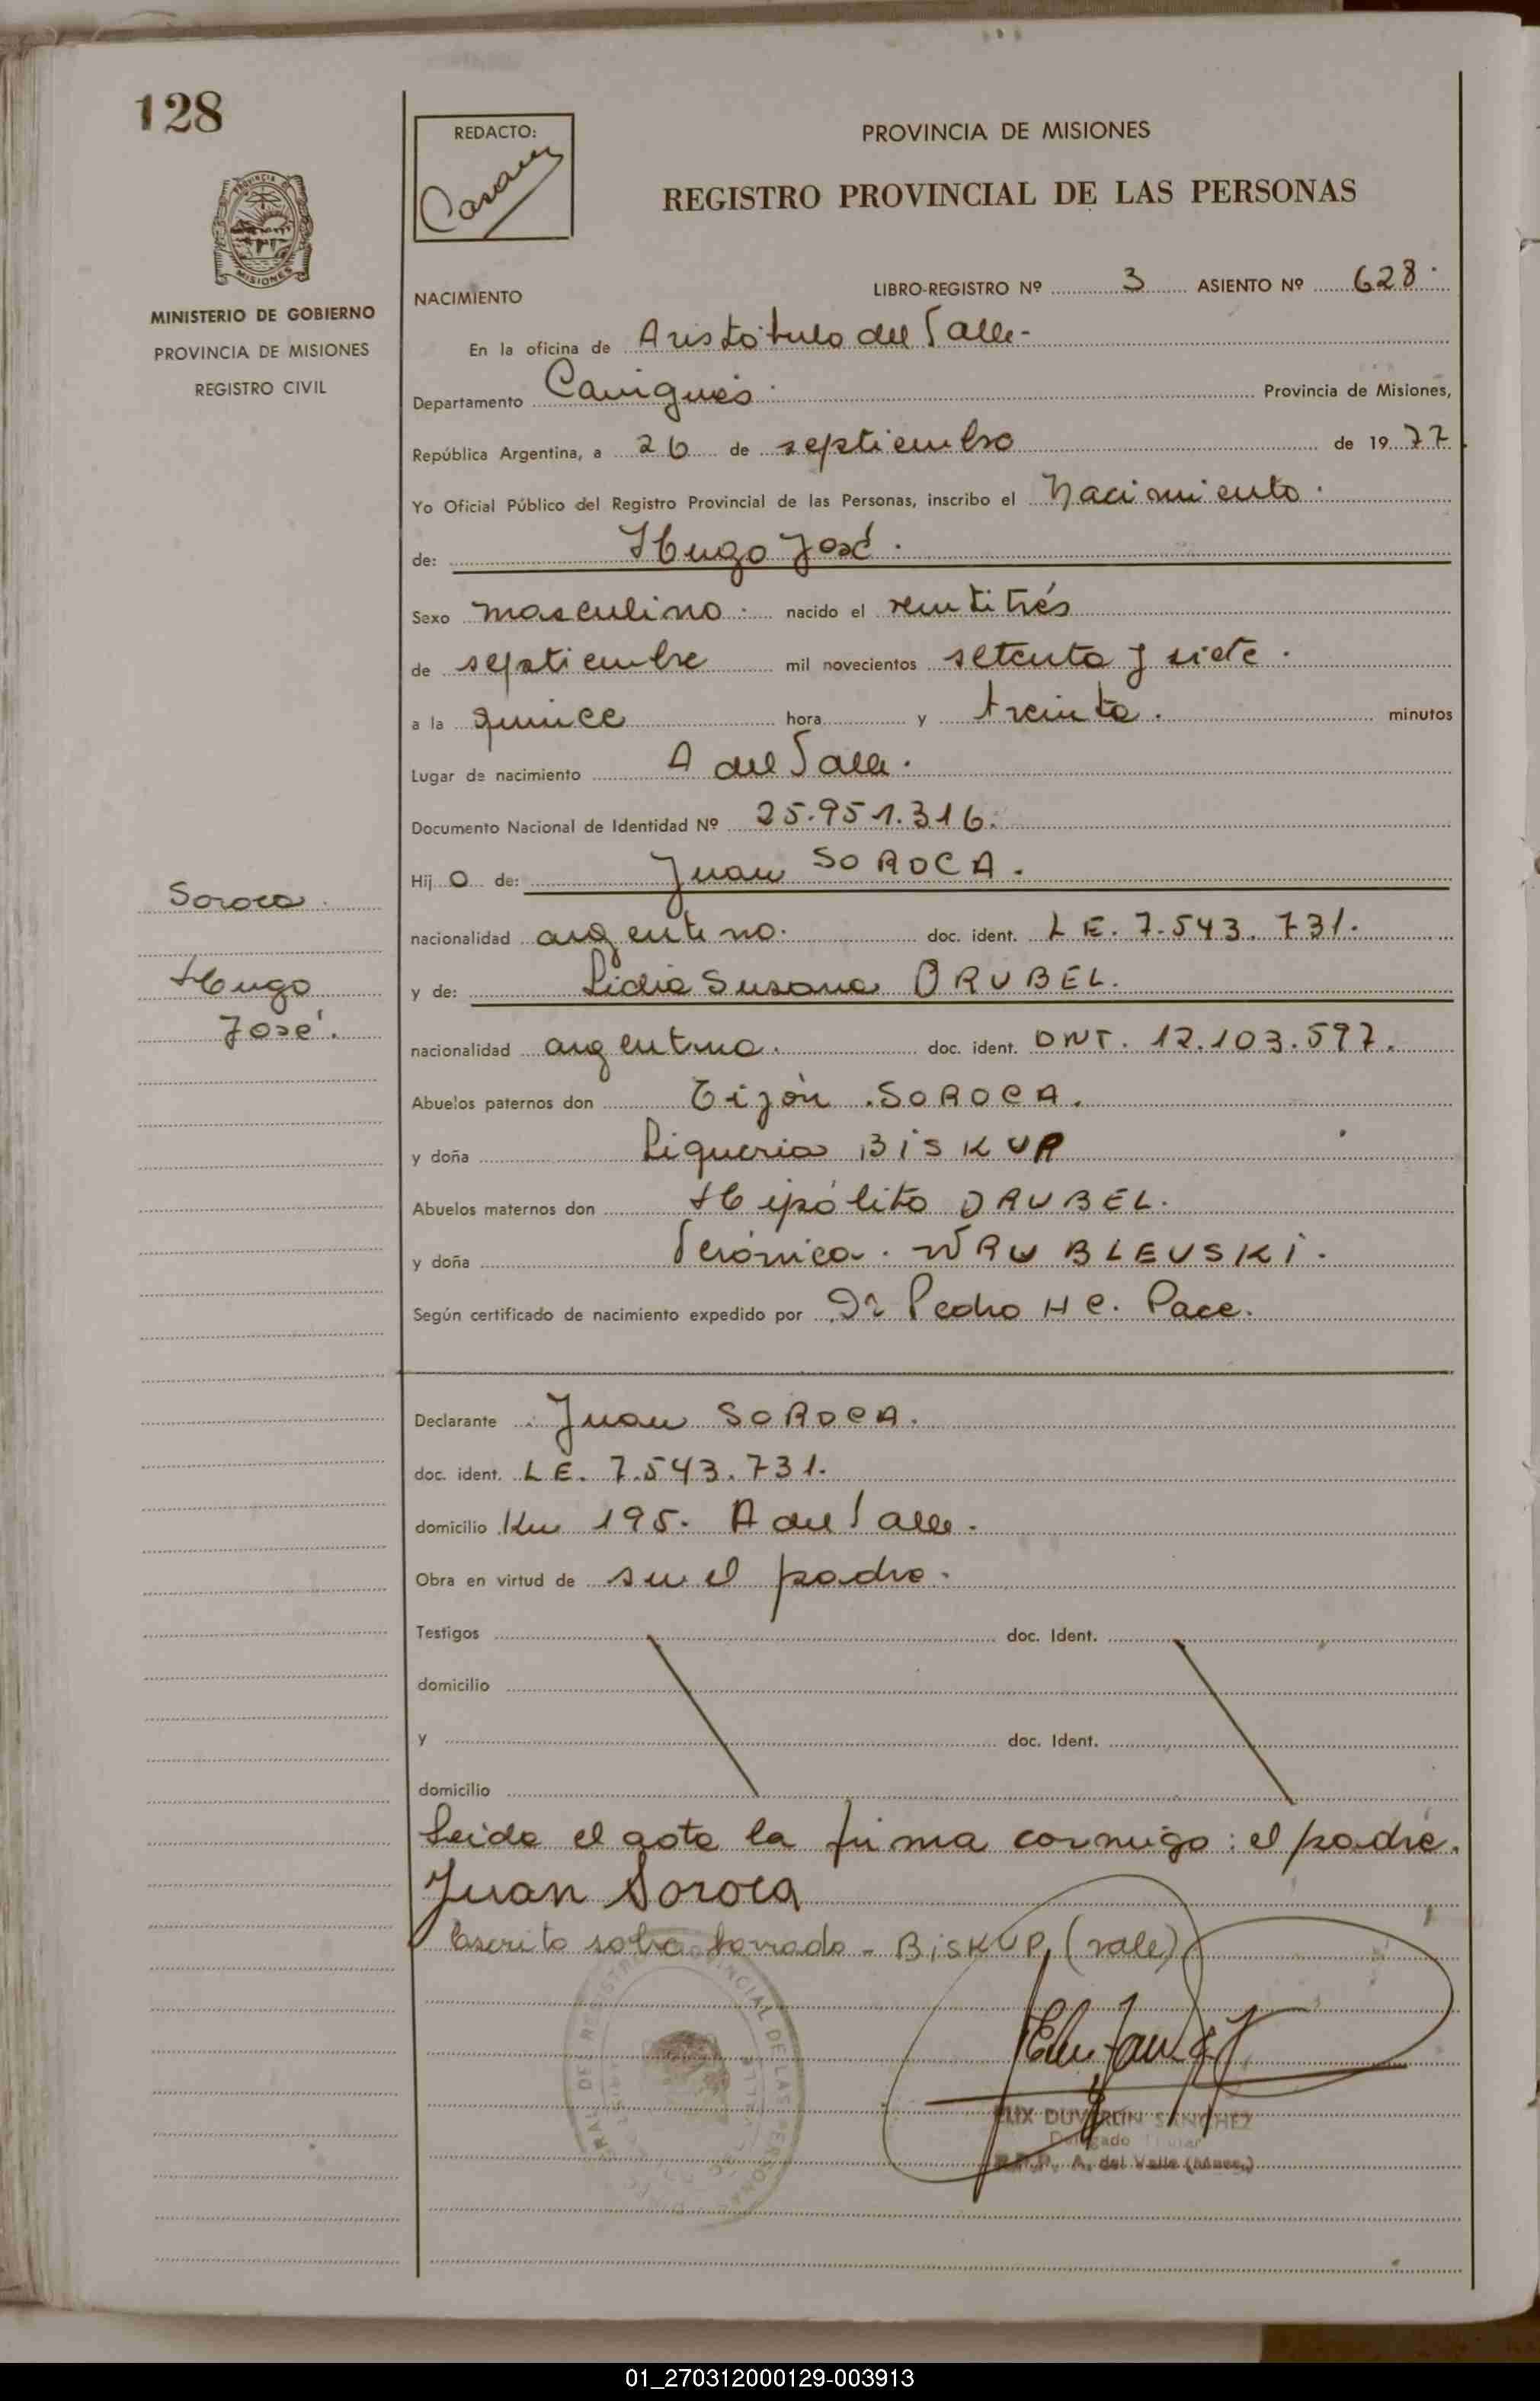 128
REDACTO:
PROVINCIA DE MISIONES
REGISTRO PROVINCIAL DE LAS PERSONAS
PROVINCIA DE MISIONES
MINISTERIO DE GOBIERNO
PROVINCIA DE MISIONES
REGISTRO CIVIL
NACIMIENTO
LIBRO-REGISTRO Nº 3 ASIENTO Nº 628.
En la oficina de Aristóbulo del Valle-
Departamento Cainguás. Provincia de Misiones,
República Argentina, a 26 de septiembre de 1977.
Yo Oficial Público del Registro Provincial de las Personas, inscribo el Nacimiento.
de: Hugo José.
Sexo masculino. nacido el veintitrés
de septiembre mil novecientos setenta y siete.
a la quince hora y treinta. minutos
Lugar de nacimiento A del Valle.
Documento Nacional de Identidad Nº 25.951.316.
Hij o de: Juan SOROCA.
Soroca.
nacionalidad argentino. doc. ident. LE. 7.543.731.
Hugo
y de: Lidia Susana ORUBEL.
José.
nacionalidad argentina. doc. ident. DNI. 12.103.597.
Abuelos paternos don SOROCA.
y doña BISKUP
Abuelos maternos don Hipólito ORUBEL.
y doña Verónica. WRUBLEUSKI.
Según certificado de nacimiento expedido por Dr Pedro H C. Pace.
Declarante Juan SOROCA.
doc. ident. LE. 7.543.731.
domicilio Km 195. A del Valle.
Obra en virtud de ser el padre.
Testigos doc. Ident.
domicilio
y doc. Ident.
domicilio
Leida el acta la firma conmigo: el padre.
Juan Soroca
Escrito sobre borrado - BISKUP, (vale)
DUVERLIN SANCHEZ
Delegado Titular
A. del Valle
01_270312000129-003913